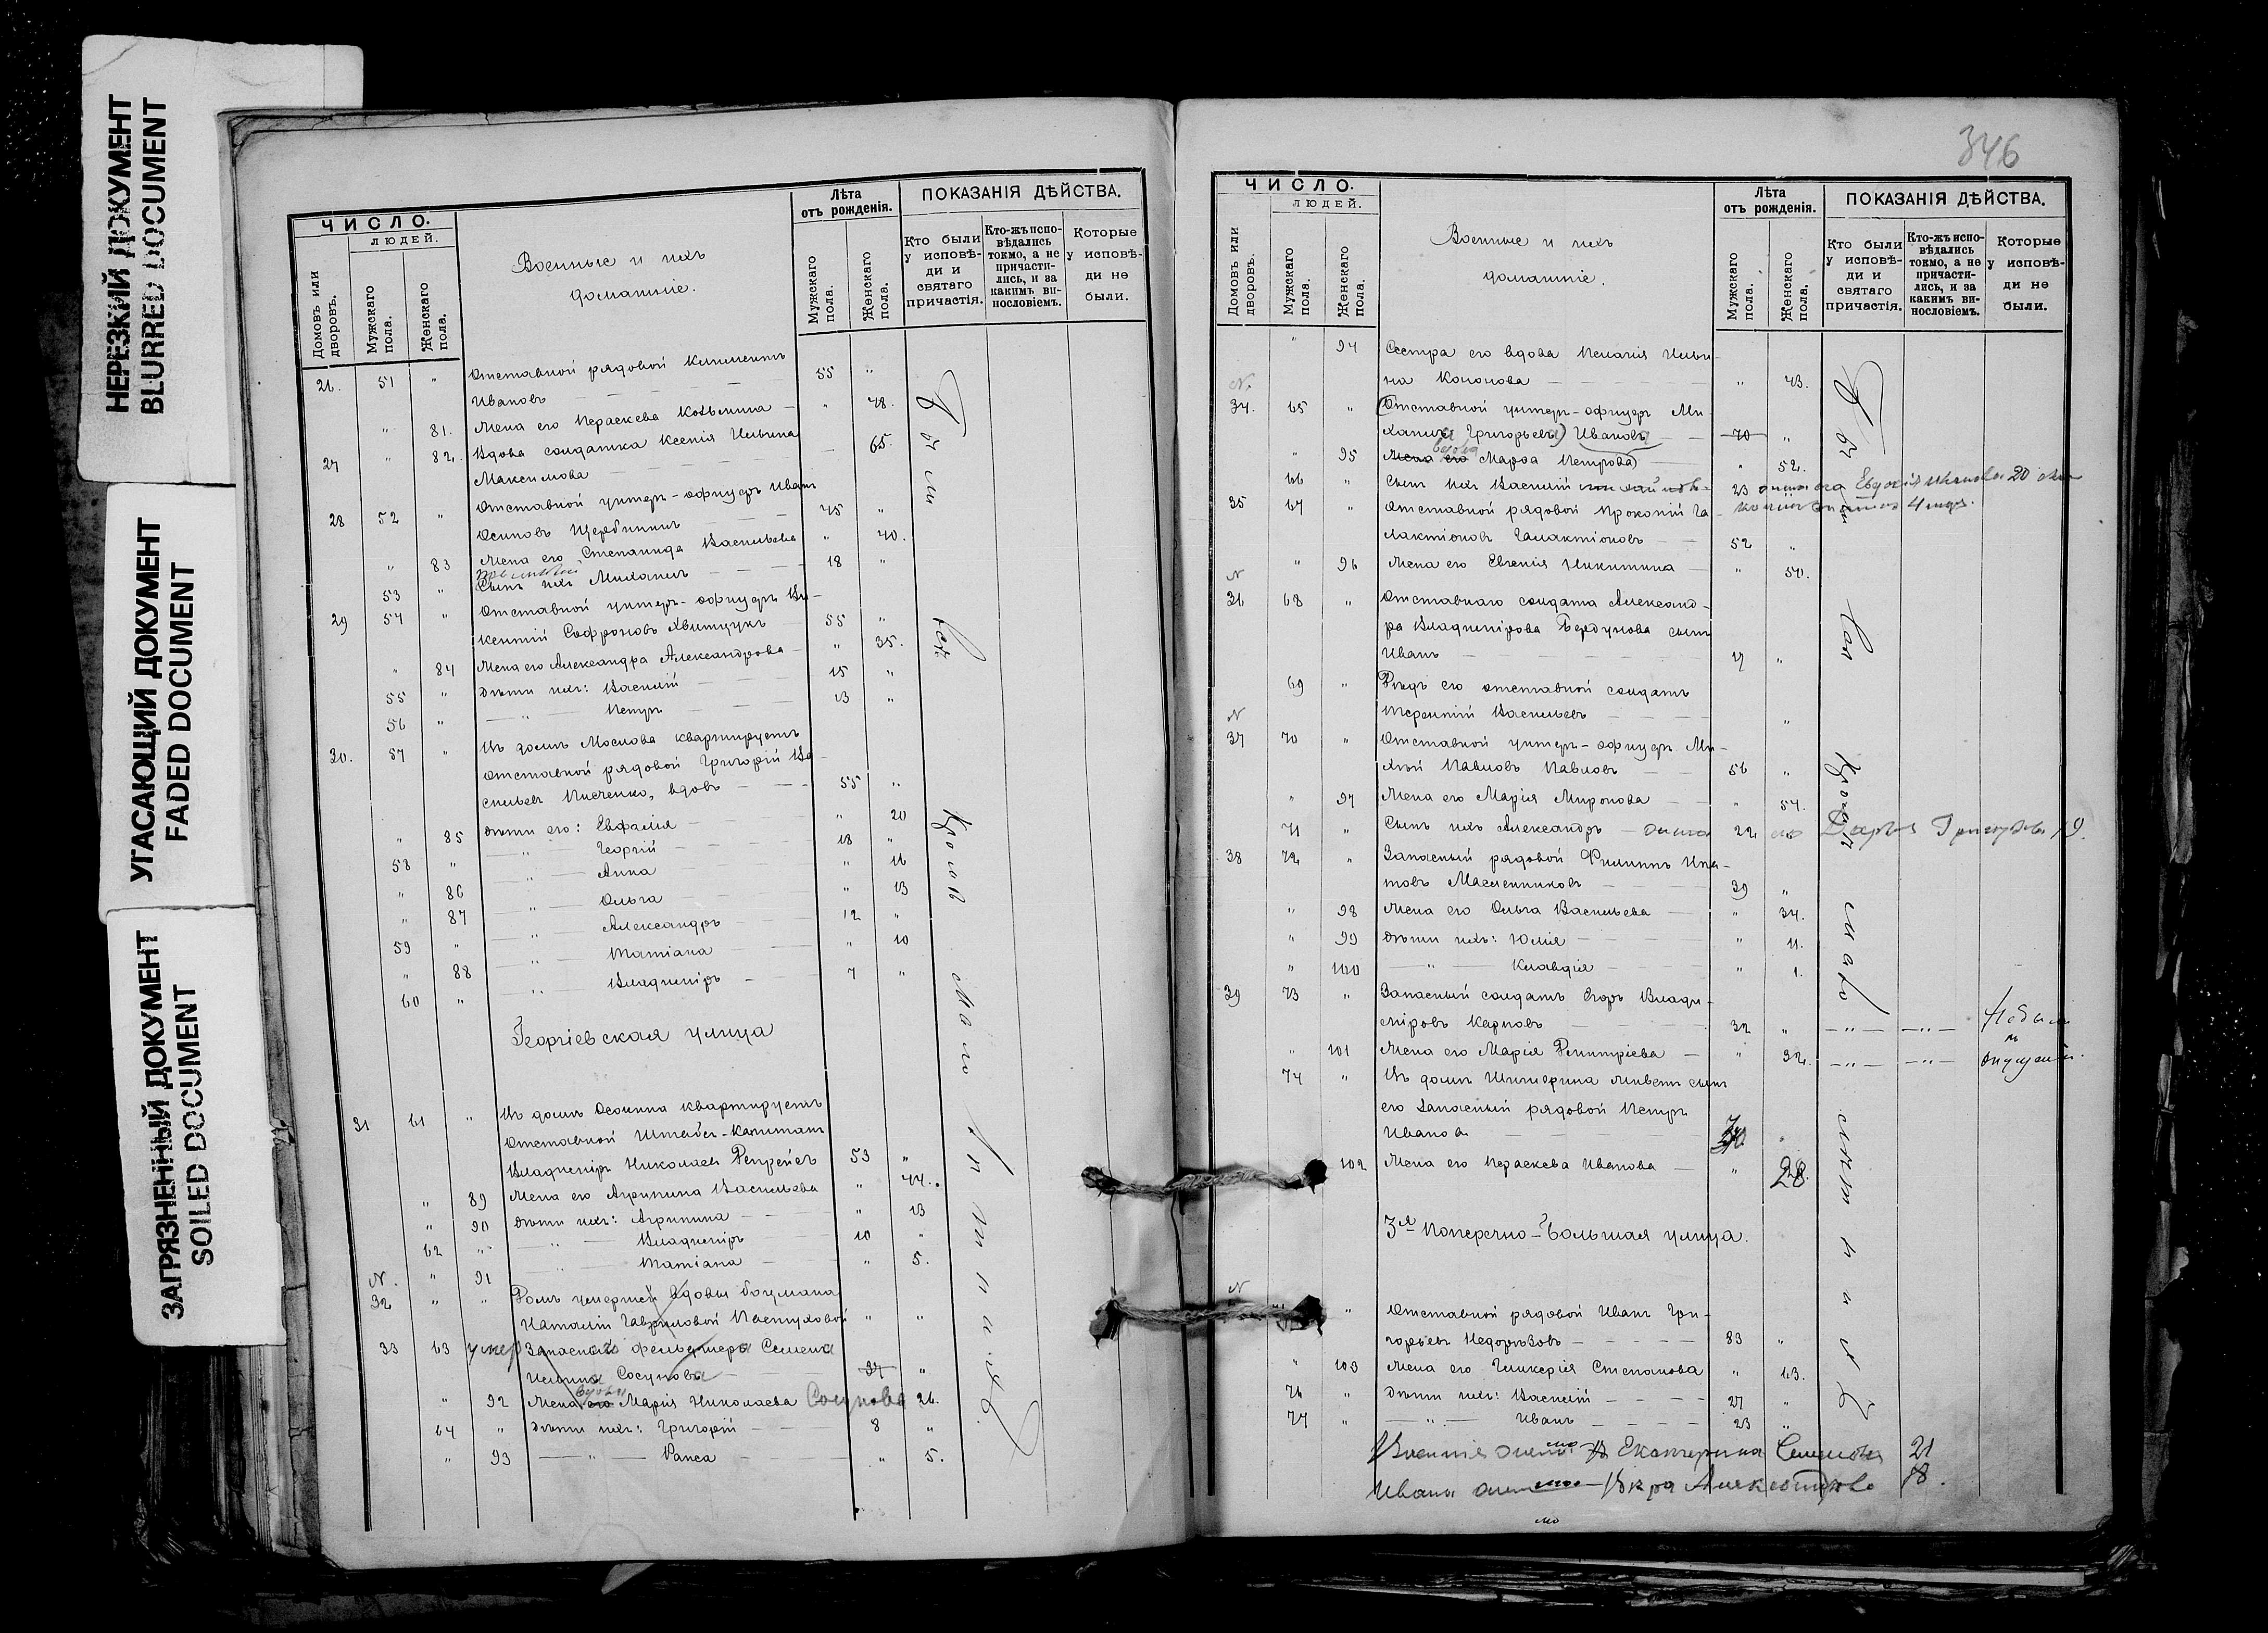 НЕРЕЗКИЙ ДОКУМЕНТ
BLURRED DOCUMENT
УГАСАЮЩИЙ ДОКУМЕНТ
FADED DOCUMENT
ЗАГРЯЗНЕННЫЙ ДОКУМЕНТ
SOILED DOCUMENT
ЧИСЛО.
ЛЮДЕЙ.
Домовъ или дворовъ.
Мужскаго пола.
Женскаго пола.
Военные и ихъ
домашніе.
Лѣта
отъ рожденія.
Мужскаго пола.
Женскаго пола.
ПОКАЗАНІЯ ДѢЙСТВА.
Кто были у исповѣ-ди и святаго причастія.
Кто-жъ испо-вѣдались токмо, а не причасти-лись, и за какимъ ви-нословіемъ.
Которые у исповѣ-ди не были.
26. 51 " Отставной рядовой Климентъ 55 "
Ивановъ
" 81. Жена его Параскева Козьмина " 48.
27 " 82. Вдова солдатка Ксенія Ильина 65.
Максимова
28 52 " Отставной унтеръ-офицеръ Иванъ
Осиповъ Щербининъ 45 "
" 83 Жена его Степанида Васильева " 40.
53 " Сынъ ихъ Михаилъ 18 "
29 54 " Отставной унтеръ-офицеръ Ви-
кентій Софроновъ 55 "
" 84 Жена его Александра Александрова " 35.
55 " Дѣти ихъ: Василій 15 "
56 " — " — Петръ 13 "
30. 57 " Въ домѣ Маслова квартируетъ
отставной рядовой Григорій Ва-
сильевъ Писченко, вдовъ 55 "
" 85 Дѣти его: Евфалія " 20
58 " — " — Георгій 18 "
" 86 — " — Анна " 16
" 87 — " — Ольга " 13
59 " — " — Александръ 12 "
" 88 — " — Татіана " 10
60 " — " — Владиміръ 7 "
Георгіевская улица
31 61 " Въ домѣ Осокина квартируетъ
Отставной Штабсъ-Капитанъ
Владиміръ Николаевъ 53 "
" 89 Жена его Агрипина Васильева " 44.
" 90 Дѣти ихъ: Агрипина " 13
62 " — " — Владиміръ 10 "
" 91 — " — Татіана " 5.
N.
32 " " Домъ умершей вдовы боцмана
Наталіи Гавриловой Пастуховой " "
33 63 умер Запаснаго фельдшера Семена
Ильина Сосунова 37 "
вдова
" 92 Жена его Марія Николаева Сосунова 26.
64 " Дѣти ихъ: Григорій 8 "
" 93 — " — Раиса " 5.
Были
всѣ
Кромѣ
346
ЧИСЛО.
ЛЮДЕЙ.
Домовъ или дворовъ.
Мужскаго пола.
Женскаго пола.
Военные и ихъ
домашніе.
Лѣта
отъ рожденія.
Мужскаго пола.
Женскаго пола.
ПОКАЗАНІЯ ДѢЙСТВА.
Кто были у исповѣ-ди и святаго причастія.
Кто-жъ испо-вѣдались токмо, а не причасти-лись, и за какимъ ви-нословіемъ.
Которые у исповѣ-ди не были.
" 94 Сестра его вдова Пелагія Ильи-
на Кононова " 43.
N.
34. 65 " Отставной унтеръ-офицеръ Ми-
хаила Григорьева Иванова 70 "
вдова
" 95 Жена его Марѳа Петрова " 52.
66 " Сынъ ихъ Василій 23 жена его Евдокія 20
35 67 " Отставной рядовой Прокопій Га-
лактіоновъ Галактіоновъ 52 "
" 96 Жена его Евгенія Никитина " 50.
N
36 68 " Отставнаго солдата Александ-
ра Владимірова сынъ
Иванъ 17 "
69 " Дядя его отставной солдатъ
Терентій Васильевъ "
N
37 70 " Отставной унтеръ-офицеръ Ми-
хѣй Павловъ Павловъ 56 "
" 97 Жена его Марія Миронова " 54.
71 " Сынъ ихъ Александръ — жена 22 его Дарья Григорьева 19.
38 72 " Запасный рядовой Филиппъ Ипа-
товъ Масленниковъ 39 "
" 98 Жена его Ольга Васильева " 34.
" 99 Дѣти ихъ: Юлія " 11.
" 100 — " — Клавдія " 1.
39 73 " Запасный солдатъ Егоръ Влади-
міровъ Карповъ 32 " — " — — " — Не были
" 101 Жена его Марія Димитріева " 32. — " — — " — по опущен.
74 " Въ домѣ Шитерина живетъ сынъ
его Запасный рядовой Петръ
Ивановъ
102 Жена его Параскева Иванова " 28.
3я Поперечно-Большая улица.
N
" Отставной рядовой Иванъ Гри-
горьевъ Недорѣзовъ 83 "
" 103 Жена его Гликерія Степанова " 63.
76 " Дѣти ихъ: Василій 27 "
77 " — " — Иванъ 23 "
Василія жена Екатерина Семенова 21
Ивана жена 18.
Были
Кромѣ